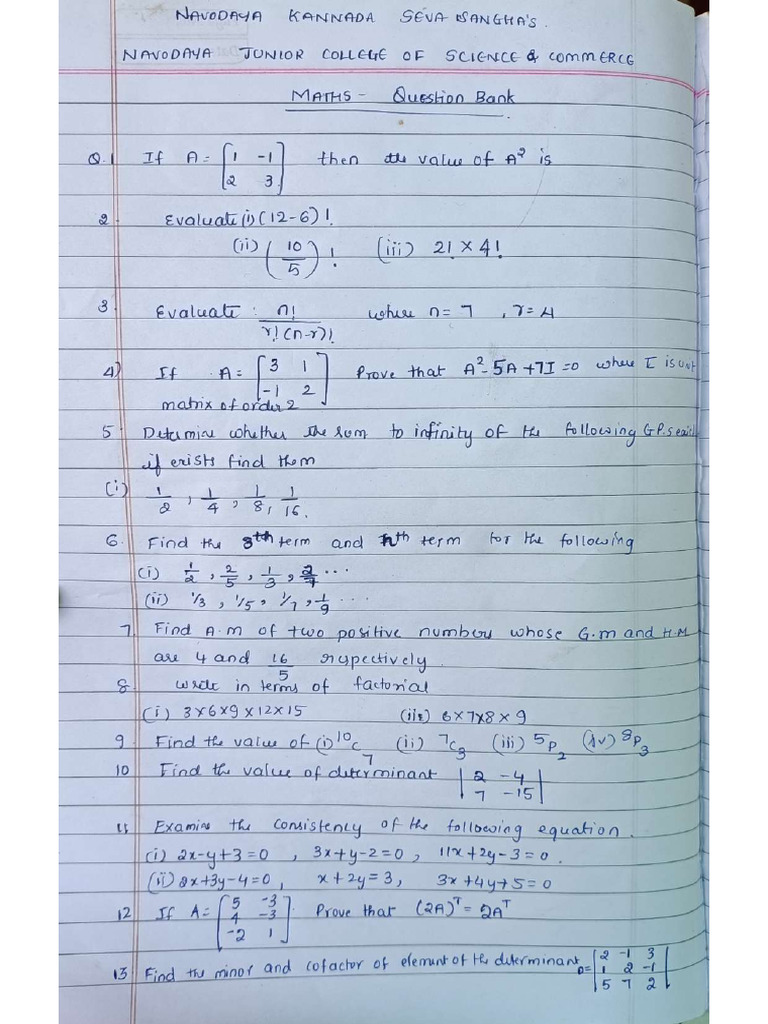 NAVODAYA KANNADA SEVA SANGHA'S.
NAVODAYA JUNIOR COLLEGE OF SCIENCE & COMMERCE
MATHS - Question Bank
Q.1 If A = [1 -1 / 2 3] then the value of A² is
2. Evaluate (i) (12-6)!
(ii) (10/5)! (iii) 2! × 4!
3 Evaluate : n!/r!(n-r)! where n = 7 , r = 4
4) If A = [3 1 / -1 2] Prove that A² - 5A + 7I = 0 where I is unit
matrix of order 2
5 Determine whether the sum to infinity of the following G.P.s each
if exists find them
(i) 1/2 , 1/4 , 1/8 , 1/16.
6. Find the 3th term and nth term for the following
(i) 1/2 , 2/5 , 1/3 , 2/7 ...
(ii) 1/3 , 1/5 , 1/7 , 1/9 ...
7 Find A.M of two positive numbers whose G.M and H.M
are 4 and 16/5 respectively.
8. write in terms of factorial
(i) 3×6×9×12×15 (ii) 6×7×8×9
9 Find the value of (i) ¹⁰C₇ (ii) ⁷C₃ (iii) ⁵P₂ (iv) ⁸P₃
10 Find the value of determinant |2 -4 / 7 -15|
11 Examine the consistency of the following equation.
(i) 2x-y+3=0 , 3x+y-2=0 , 11x+2y-3=0.
(ii) 2x+3y-4=0, x+2y=3, 3x+4y+5=0
12 If A = [5 -3 / 4 -3 / -2 1] Prove that (2A)ᵀ = 2Aᵀ
13 Find the minor and cofactor of element of the determinant D = |2 -1 3 / 1 2 -1 / 5 7 2|